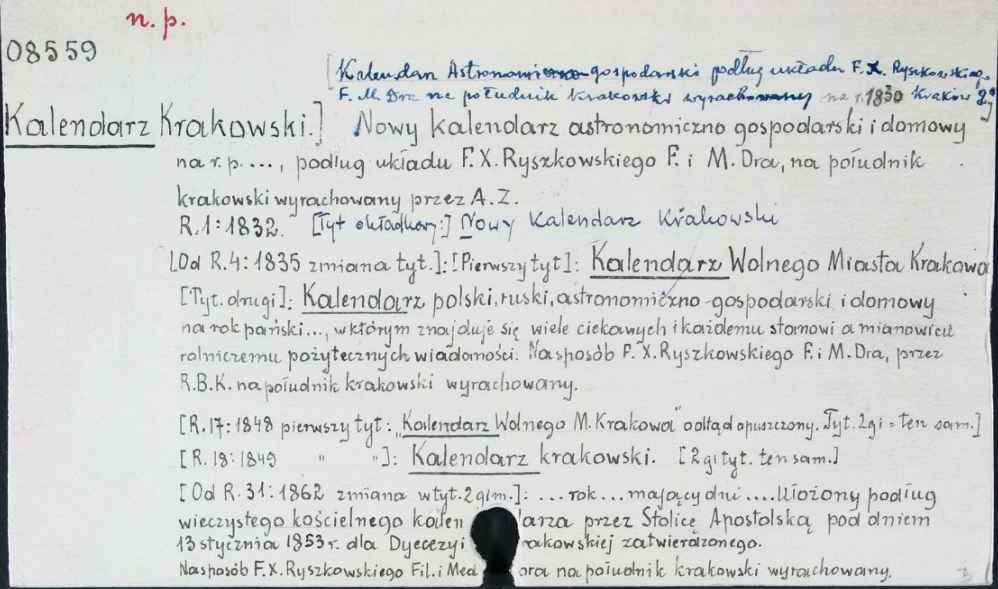 n. p.
08559
[Kalendarz Astronomiczno gospodarski podług układu F. X. Ryszkowskiego
F. M Dra na południk krakowski wyrachowany na r. 1830 Kraków
Kalendarz Krakowski.] Nowy kalendarz astronomiczno gospodarski i domowy
na r. p. ..., podług układu F. X. Ryszkowskiego F. i M. Dra, na południk
krakowski wyrachowany przez A. Z.
R. 1: 1832. [Tyt okładkowy:] Nowy Kalendarz Krakowski
[Od R. 4: 1835 zmiana tyt.]: [Pierwszy tyt]: Kalendarz Wolnego Miasta Krakowa
[Tyt. drugi]: Kalendarz polski, ruski, astronomiczno-gospodarski i domowy
na rok pański..., w którym znajduje się wiele ciekawych i każdemu stanowi a mianowicie
rolniczemu pożytecznych wiadomości. Na sposób F. X. Ryszkowskiego F. i M. Dra, przez
R. B. K. na południk krakowski wyrachowany.
[R. 17: 1848 pierwszy tyt: "Kalendarz Wolnego M. Krakowa" odtąd opuszczony. Tyt. 2gi = ten sam.]
[R. 18: 1849 " "]: Kalendarz krakowski. [2gi tyt. ten sam.]
[Od R. 31: 1862 zmiana w tyt. 2gim.]: ... rok ... mający dni .... Ułożony podług
wieczystego kościelnego kalen darza przez Stolicę Apostolską pod dniem
13 stycznia 1853 r. dla Dyecezyi rakowskiej zatwierdzonego.
Na sposób F. X. Ryszkowskiego Fil. i Med ora na południk krakowski wyrachowany.